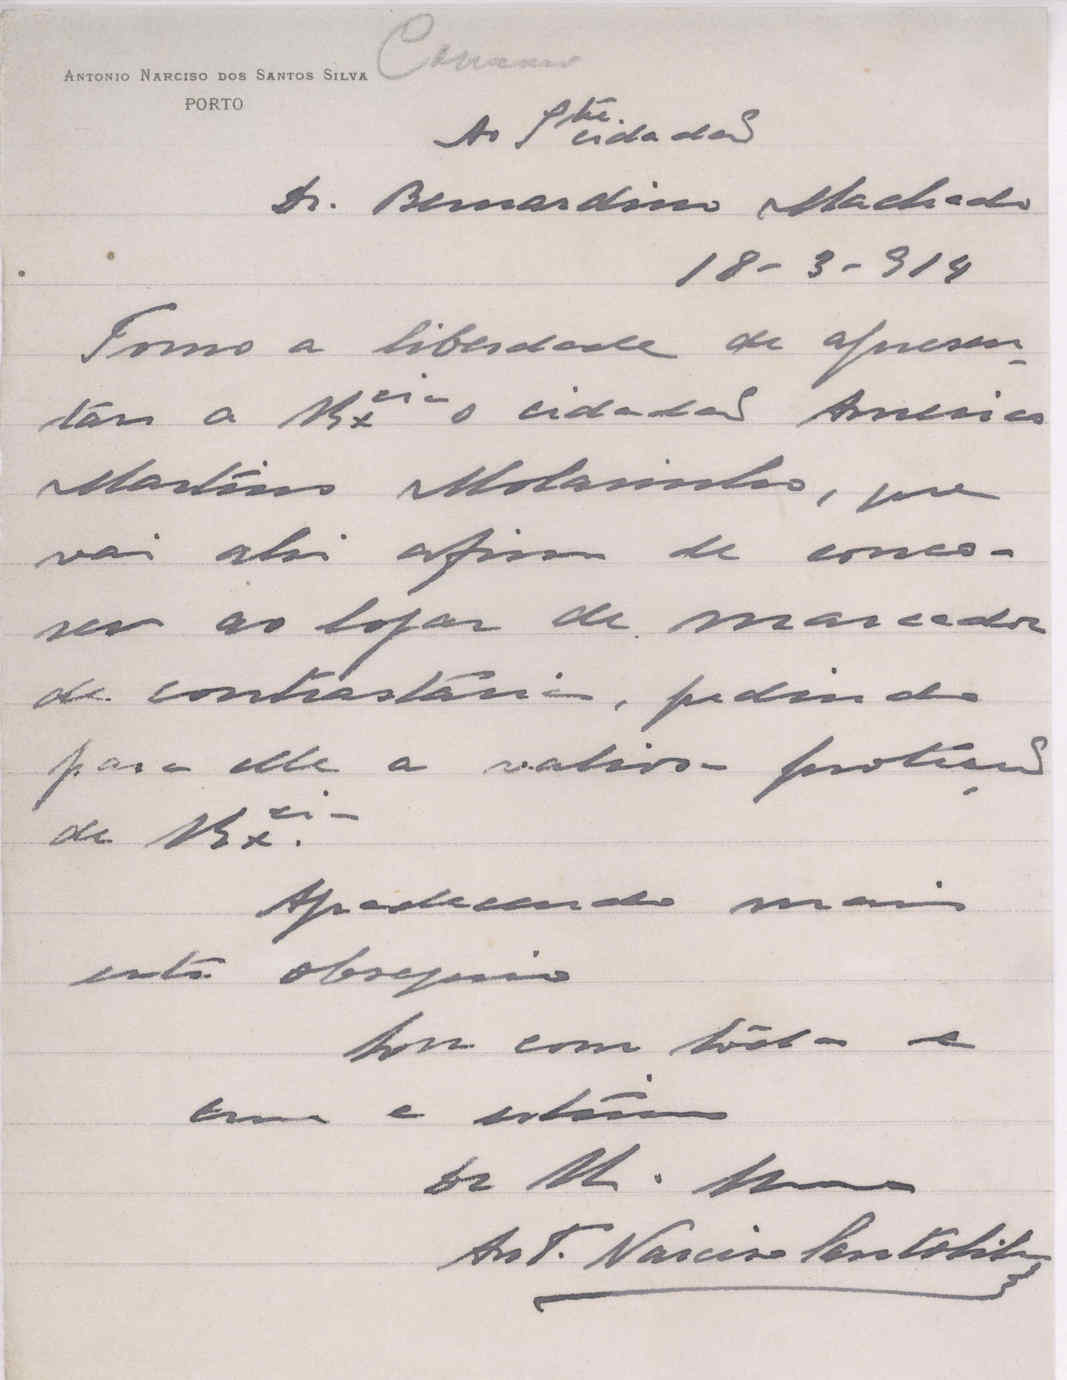 ANTONIO NARCISO DOS SANTOS SILVA
PORTO
Ao cidadão
Dr. Bernardino Machado
18-3-914
Tomo a liberdade de apresen-
tar a V Ex.cia o cidadão Americo
Martins Molarinho, que
vai ahi afim de conco-
rer ao logar de marcador
de contrastaria, pedindo
para elle a valiosa proteção
de V Ex.cia.
Agradecendo mais
este obsequio
Sou com tôda a
e estima
de V.
Ant. Narciso Santos Silva